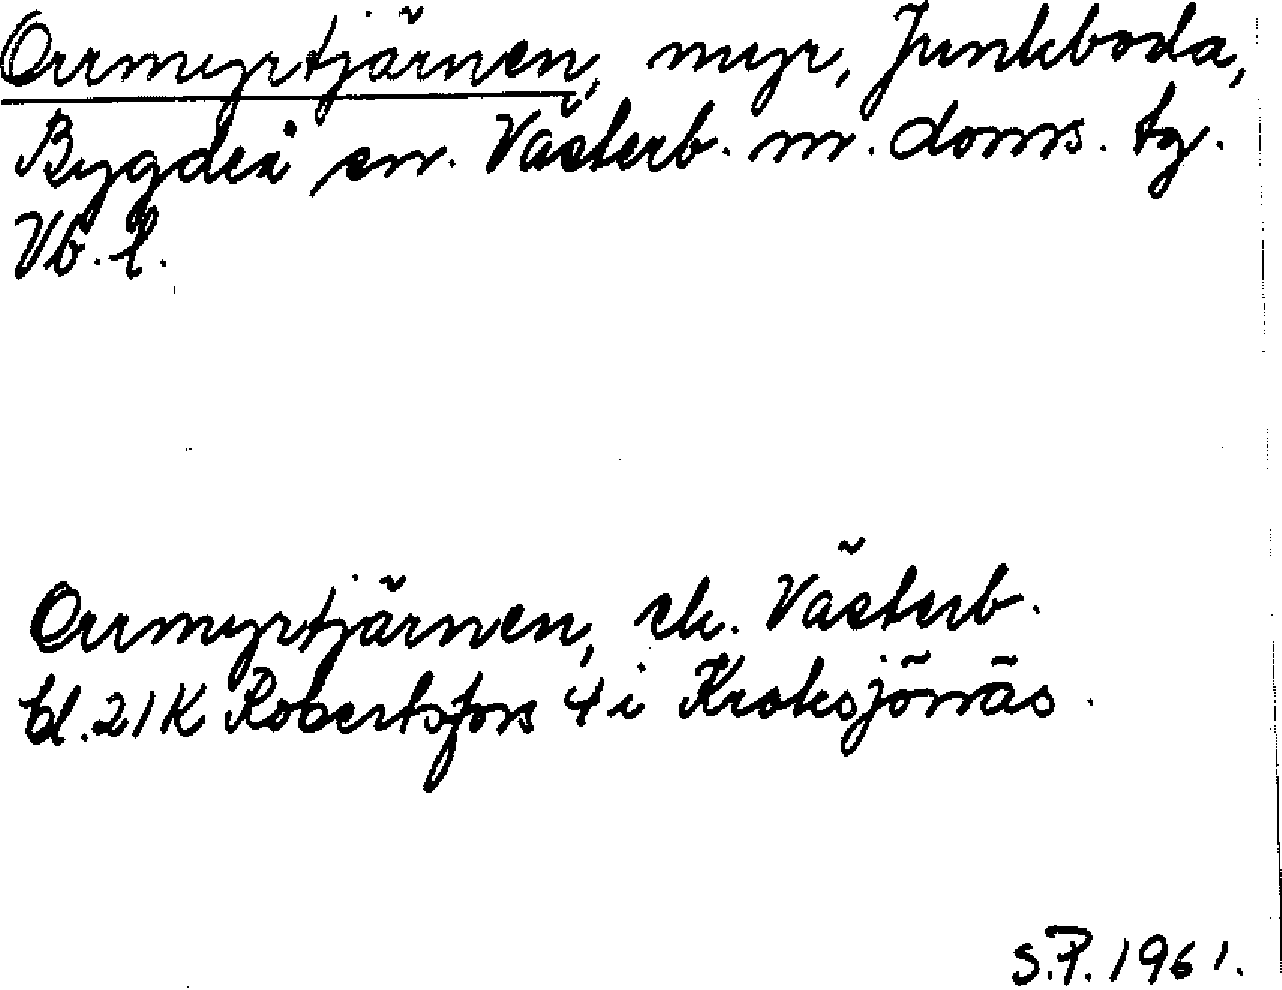 Orrmyrtjärnen, myr, Junkboda,
Bygdeå sn. Västerb. m. doms. tg.
Vb. l.
Orrmyrtjärnen, ek. Västerb.
bl. 21K Robertsfors 4 i Kroksjönäs.
S.P. 1961.